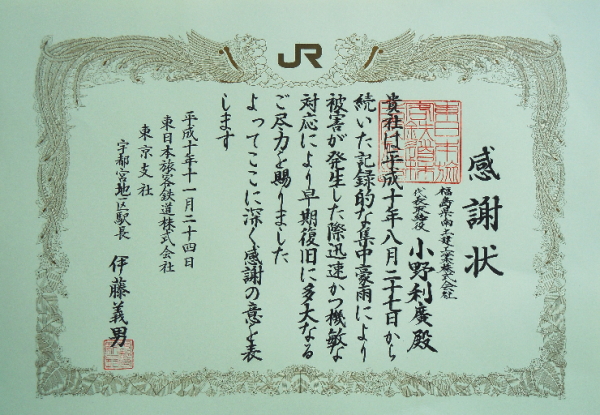 JR
感謝状
福島県南土建工業株式会社
代表取締役 小野利廣殿
貴社は平成十年八月二十七日から
続いた記録的な集中豪雨により
被害が発生した際迅速かつ機敏な
対応により早期復旧に多大なる
ご尽力を賜りました
よってここに深く感謝の意を表
します
平成十年十一月二十四日
東日本旅客鉄道株式会社
東京支社
宇都宮地区駅長 伊藤義男